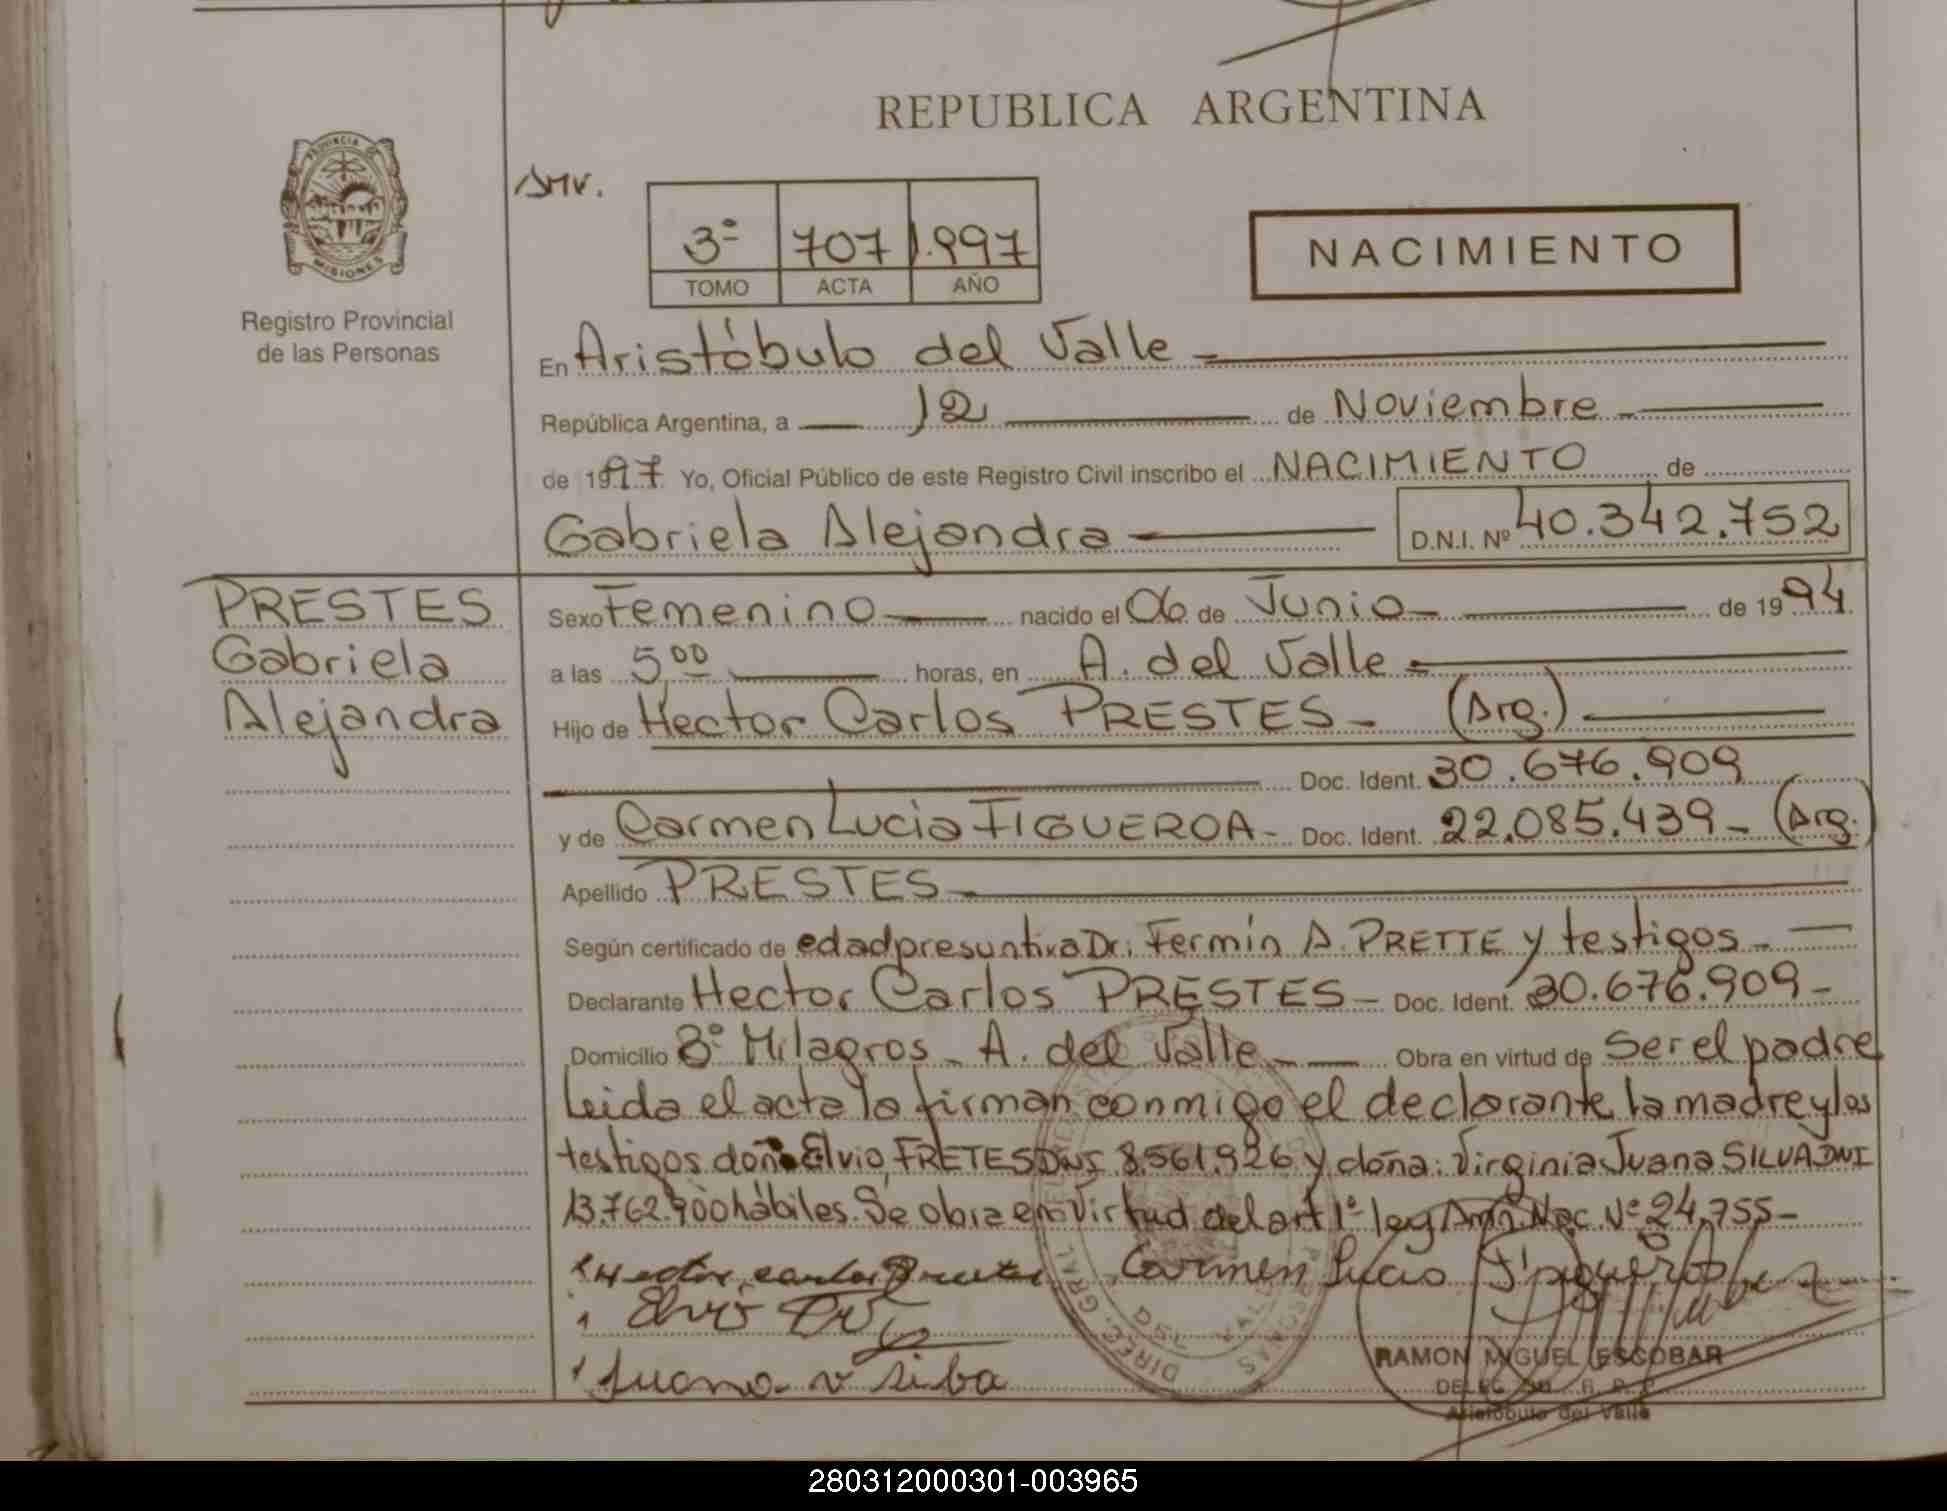 REPUBLICA ARGENTINA
PROVINCIA DE
MISIONES
Registro Provincial
de las Personas
3º 707 1.997
TOMO ACTA AÑO
NACIMIENTO
En Aristóbulo del Valle
República Argentina, a 12 de Noviembre
de 1997 Yo, Oficial Público de este Registro Civil inscribo el NACIMIENTO de
Gabriela Alejandra D.N.I. Nº 40.342.752
PRESTES
Gabriela
Alejandra
Sexo Femenino nacido el 06 de Junio de 1994
a las 5,00 horas, en A. del Valle
Hijo de Hector Carlos PRESTES (Arg.)
Doc. Ident. 30.676.909
y de Carmen Lucia FIGUEROA Doc. Ident. 22.085.439 (Arg.)
Apellido PRESTES
Según certificado de edad presuntiva Dr. Fermín A. PRETTE y testigos
Declarante Hector Carlos PRESTES Doc. Ident. 30.676.909
Domicilio Bº Milagros A. del Valle Obra en virtud de Ser el padre
Leida el acta la firman conmigo el declarante, la madre y los
testigos don Elvio FRETES DNI 8.561.926 y doña: Virginia Juana SILVA DNI
13.762.900 hábiles. Se obra en virtud del art 1º ley Amn. Nac. Nº 24.755
Hector carlos Carmen Lucia Figueroa
Elvio
Juana v Silba
DIREC. GRAL. DEL VALLE
RAMON MIGUEL ESCOBAR
Aristobulo del Valle
280312000301-003965